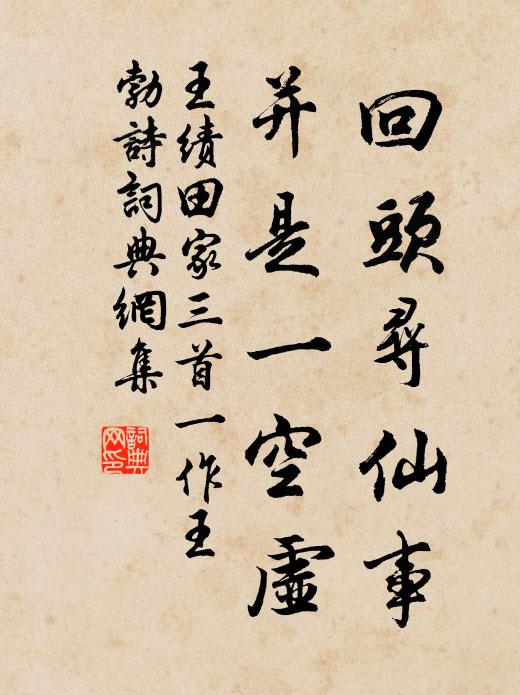 回頭尋仙事
并是一空虛
王績田家三首一作王
勃詩詞典網集
詞典網印